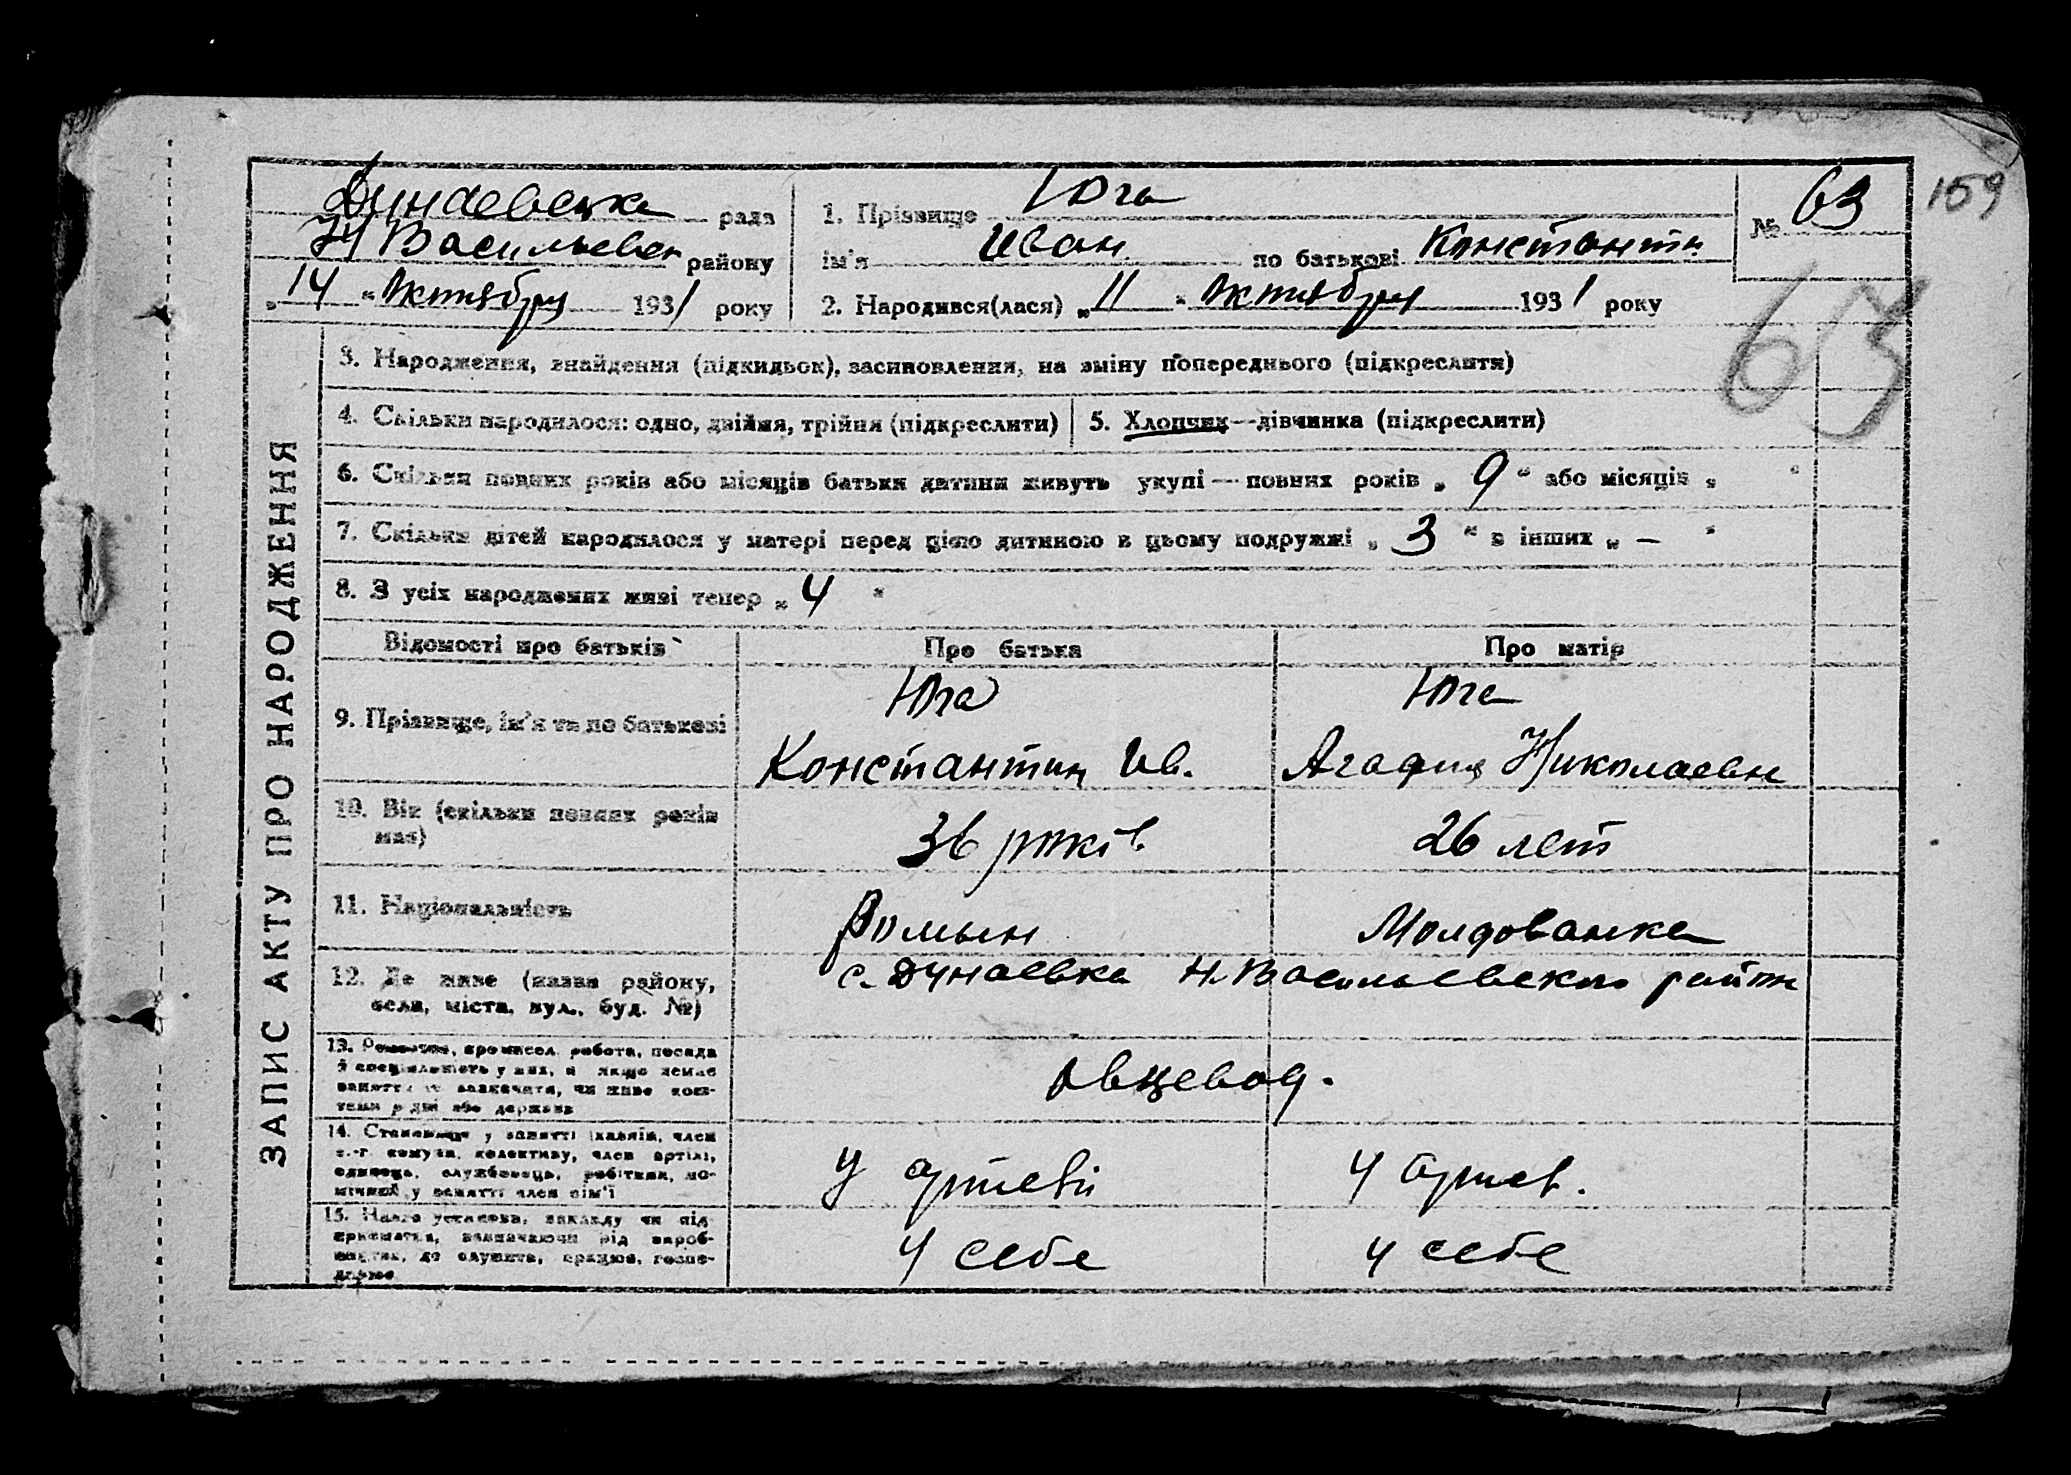 Дунаевська рада
Н Васильевск району
„14 “ Октября 1931 року
1. Прізвище Юга
ім'я Иван по батькові Константин
2. Народився(лася) „11 “ Октября 1931 року
№ 63
159
63
ЗАПИС АКТУ ПРО НАРОДЖЕННЯ
3. Народження, знайдення (підкидьок), засиновлення, на зміну попереднього (підкреслити)
4. Скільки народилося: одно, двійня, трійня (підкреслити)
5. Хлопчик—дівчинка (підкреслити)
6. Скільки повних років або місяців батьки дитини живуть укупі — повних років „ 9 “ або місяців „ “
7. Скільки дітей народилося у матері перед цією дитиною в цьому подружжі „ 3 “ в інших „ — “
8. З усіх народжених живі тепер „ 4 “
Відомості про батьків Про батька Про матір
9. Прізвище, ім'я та по батькові
Юга
Константин Ив.
Юга
Агафия Николаевн
10. Вік (скільки повних років має)
36 років
26 лет
11. Національність
Ромын
Молдованка
12. Де живе (назва району,
села, міста, вул., буд. №)
с. Дунаевка Н. Васильевского район
13. Ремество, промисел, робота, посада
й спеціяльність у них, а якщо немає
заняття
Овцевод.
14. Становище у занятті (хазяїн, член
с.-г. комуни, колективу, член артілі,
одинець, службовець, робітник, по-
мічний у занятті член сім'ї
У артелі
У артел.
15. Назва установи, закладу чи під-
приємства, зазначаючи рід вироб-
ництва, де служить, працює, госпо-
дарює
У себе
У себе